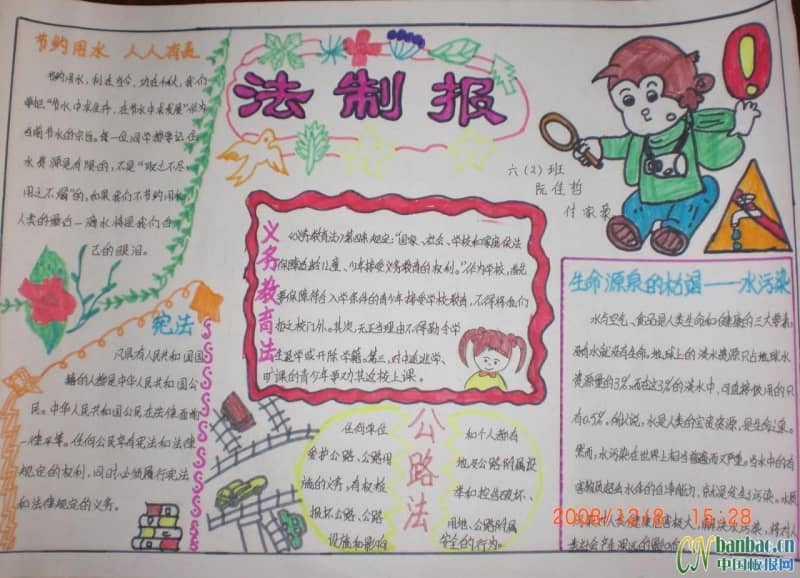 节约用水 人人有责
节约用水,利在当今,功在千秋,我们
要把“节水中求生存,在节水中求发展”作为
当前节水的宗旨。每一位同学都要记住
水资源是有限的,不是“取之不尽
用之不竭”的,如果我们不节约用水,
人类的最后一滴水将是我们自
己的眼泪。
法制报
六(2)班
阮佳哲
付家豪
义务教育法
《义务教育法》第四条规定:“国家、社会、学校和家庭依法
保障适龄儿童、少年接受义务教育的权利。”作为学校,首先
要保障符合入学条件的青少年接受学校教育,不得将他们
拒之校门外。其次,无正当理由不得勒令学
生退学或开除学籍。第三,对中途退学、
旷课的青少年要力其返校上课。
宪法
凡具有人民共和国国
籍的人都是中华人民共和国公
民。中华人民共和国公民在法律面前
一律平等。任何公民享有宪法和法律
规定的权利,同时必须履行宪法
和法律规定的义务。
公路法
任何单位
爱护公路、公路用
施的义务,有权检
损坏公路、公路
设施和影响
和个人都有
地及公路附属设
举和控告破坏、
用地、公路附属
安全的行为。
生命源泉的枯竭——水污染
水与空气、食品是人类生命和健康的三大要素,
没有水就没有生命。地球上的淡水资源只占地球水
资源量的3%,而在这3%的淡水中,可直接饮用的只
有0.5%。所以说,水是人类的宝贵资源,是生命之源。
然而,水污染在世界上相当普遍而又严重。当水中的有
害物质超出水体的自净能力,就发生了污染。水质
人类健康危害极大,解决水污染,将对人
类社会产生深远的影响
2008/12/8 15:28
CN banbao.cn
中国板报网